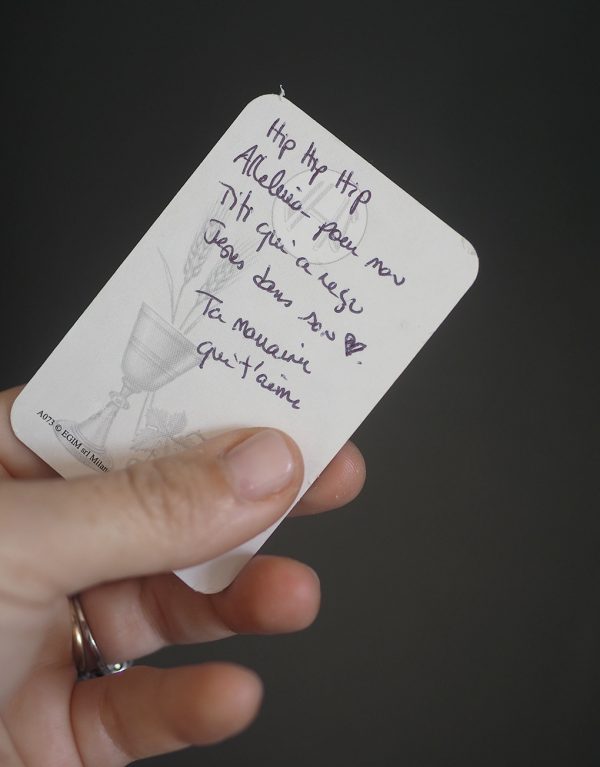 Hip Hip Hip
Alleluia – pour mon
Titi qui a reçu
Jésus dans son ♥.
Ta marraine
qui t'aime
A073 © EGIM srl Milan